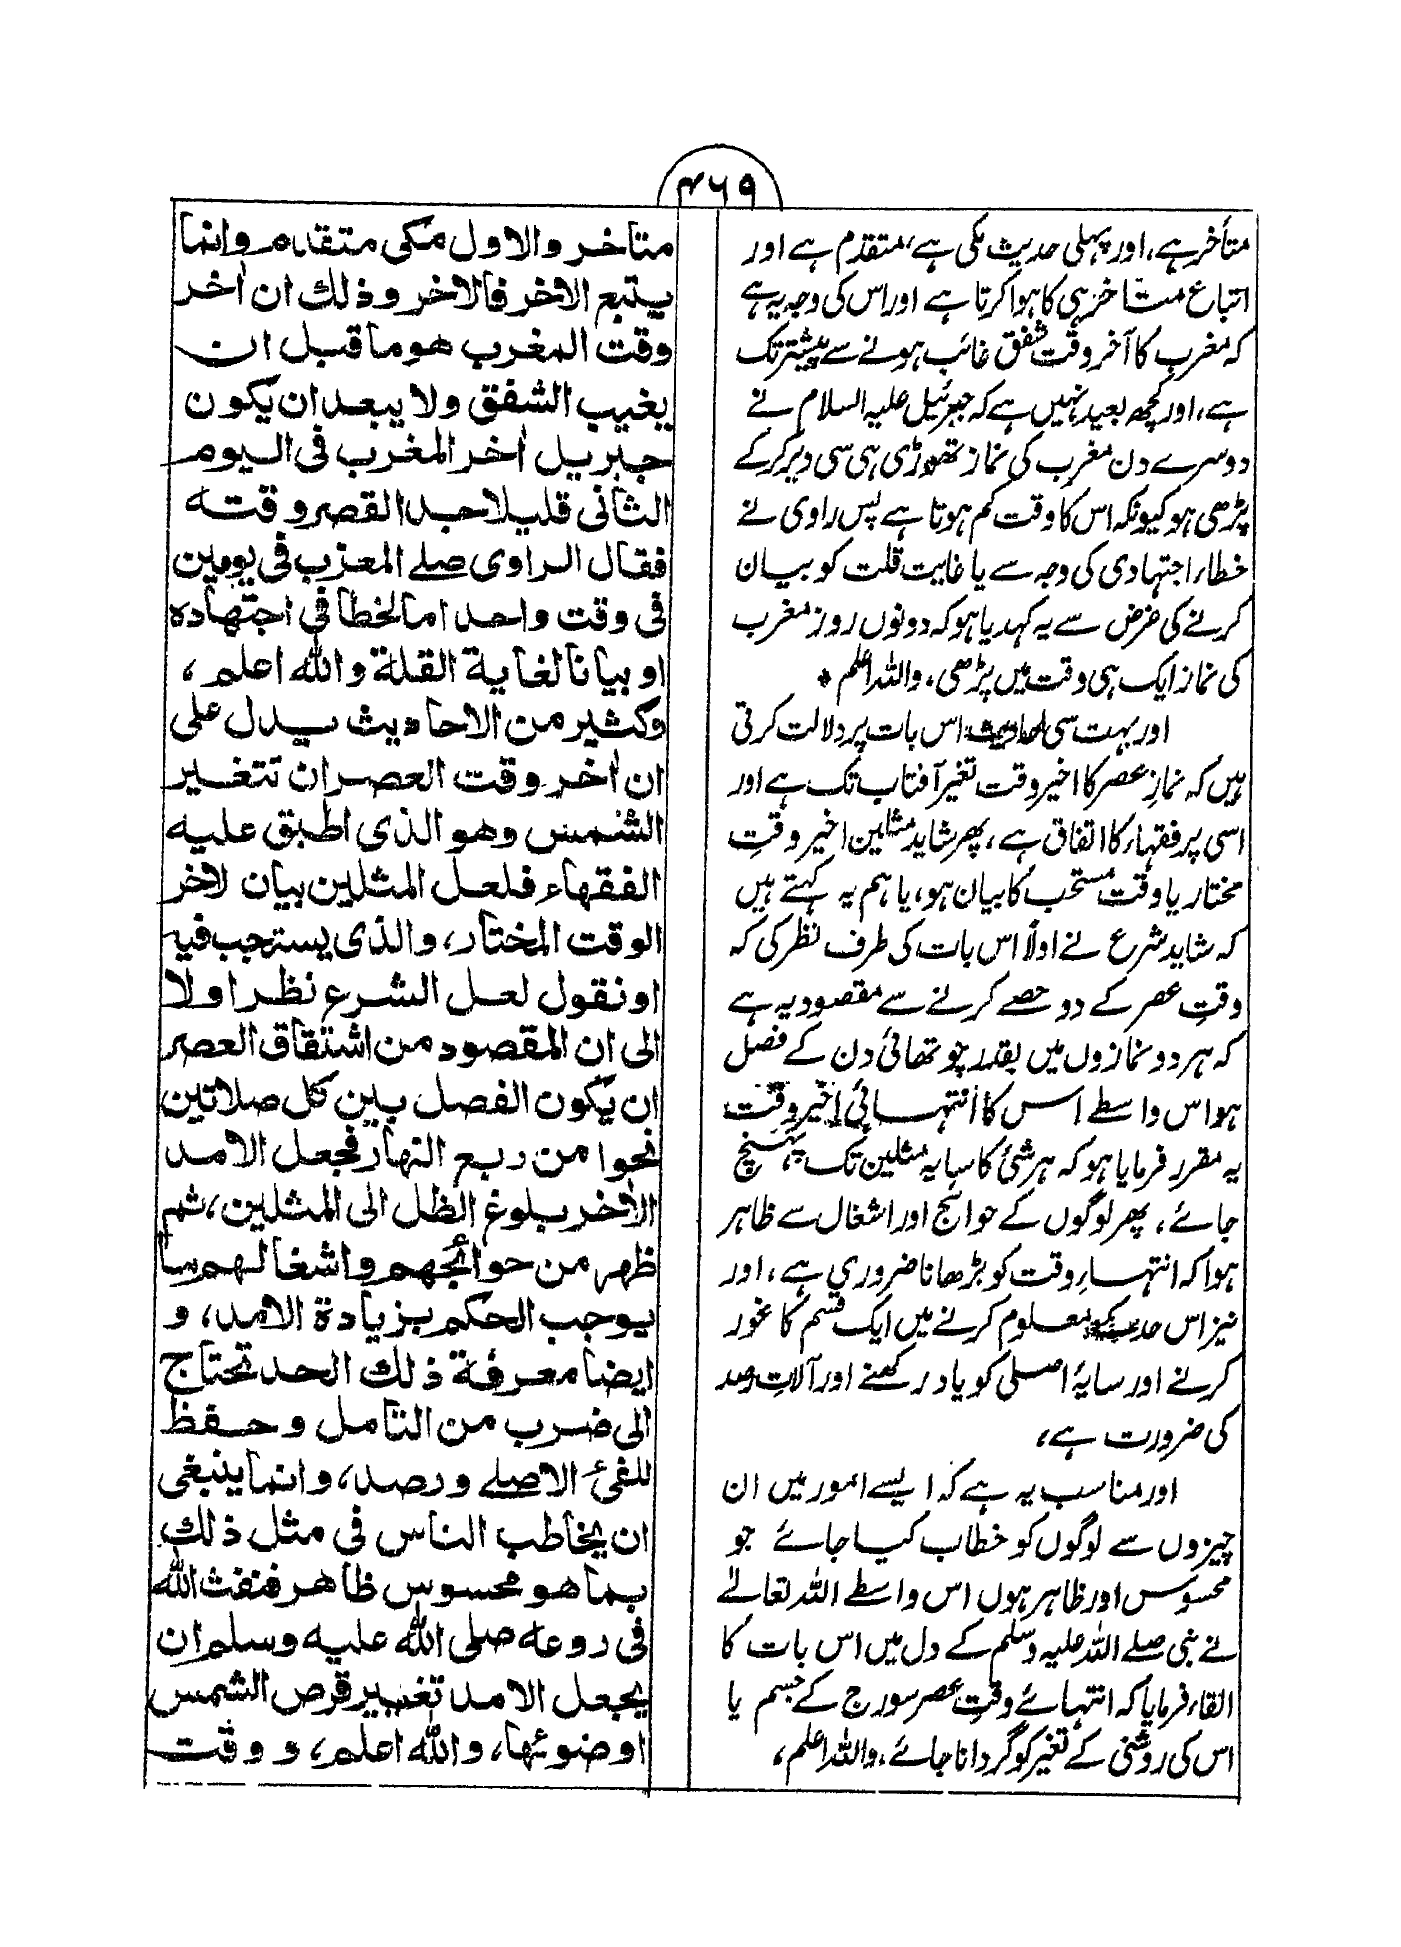 ۴۶۹
متأخر ہے، اور پہلی حدیث مکی ہے، متقدم ہے اور
اتباع متأخر ہی کا ہوا کرتا ہے اور اس کی وجہ یہ ہے
کہ مغرب کا آخر وقت شفق غائب ہونے سے پیشتر تک
ہے، اور کچھ بعید نہیں ہے کہ جبرئیل علیہ السلام نے
دوسرے دن مغرب کی نماز تھوڑی ہی سی دیر کرکے
پڑھی ہو کیونکہ اس کا وقت کم ہوتا ہے پس راوی نے
خطاء اجتہادی کی وجہ سے یا غایت قلت کو بیان
کرنے کی غرض سے یہ کہدیا ہو کہ دونوں روز مغرب
کی نماز ایک ہی وقت میں پڑھی، واللہ اعلم *
اور بہت سی احادیث اس بات پر دلالت کرتی
ہیں کہ نمازِ عصر کا اخیر وقت تغیر آفتاب تک ہے اور
اسی پر فقہاء کا اتفاق ہے، پھر شاید مثلین اخیر وقتِ
مختار یا وقت مستحب کا بیان ہو، یا ہم یہ کہتے ہیں
کہ شاید شرع نے اولاً اس بات کی طرف نظر کی کہ
وقتِ عصر کے دو حصے کرنے سے مقصود یہ ہے
کہ ہر دو نمازوں میں بقدر چوتھائی دن کے فصل
ہو اس واسطے اس کا انتہائی اخیر وقت
یہ مقرر فرمایا ہو کہ ہر شئ کا سایہ مثلین تک پہنچ
جائے، پھر لوگوں کے حوائج اور اشغال سے ظاہر
ہوا کہ انتہاءِ وقت کو بڑھانا ضروری ہے، اور
نیز اس حد کے معلوم کرنے میں ایک قسم کا غور
کرنے اور سایۂ اصلی کو یاد رکھنے اور آلاتِ رصد
کی ضرورت ہے،
اور مناسب یہ ہے کہ ایسے امور میں ان
چیزوں سے لوگوں کو خطاب کیا جائے جو
محسوس اور ظاہر ہوں اس واسطے اللہ تعالےٰ
نے نبی صلے اللہ علیہ وسلم کے دل میں اس بات کا
القاء فرمایا کہ انتہائے وقتِ عصر سورج کے جسم یا
اس کی روشنی کے تغیر کو گردانا جائے، واللہ اعلم،
متاخر والاول مکی متقدم وانما
یتبع الاٰخر فالاٰخر وذلك ان اٰخر
وقت المغرب هو ما قبل ان
یغیب الشفق ولا یبعد ان یکون
جبریل اخر المغرب فی الیوم
الثانی قلیلا جدا لقصر وقته
فقال الراوی صلے المغرب فی یومین
فی وقت واحد اما لخطا فی اجتهاده
او بیانا لغایة القلة والله اعلم،
وکثیر من الاحادیث یدل علی
ان اٰخر وقت العصر ان تتغیر
الشمس وهو الذی اطبق علیه
الفقهاء فلعل المثلین بیان لاخر
الوقت المختار، والذی یستحب فیه
او نقول لعل الشرع نظر اولا
الی ان المقصود من اشتقاق العصر
ان یکون الفصل بین کل صلاتین
نحوا من ربع النهار فجعل الامد
الاٰخر بلوغ الظل الی المثلین، ثم
ظهر من حوائجهم واشغالهم ما
یوجب الحکم بزیادة الامد، و
ایضا معرفة ذلك الحد تحتاج
الی ضرب من التامل وحفظ
للفئ الاصلے ورصد، وانما ینبغی
ان یخاطب الناس فی مثل ذلك
بما هو محسوس ظاهر فنفث الله
فی روعه صلی الله علیه وسلم ان
یجعل الامد تغییر قرص الشمس
او ضوئها، والله اعلم، ووقت